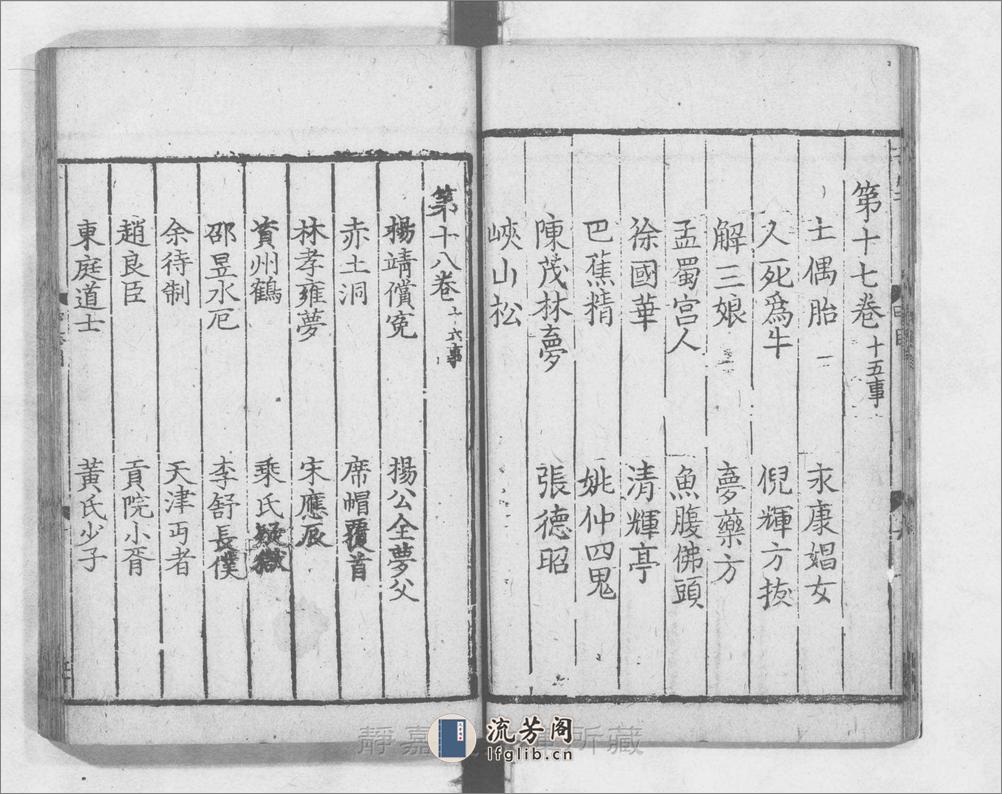 第十七卷 十五事
土偶胎 永康娼女
人死爲牛 倪輝方技
解三娘 夢藥方
孟蜀宫人 魚腹佛頭
徐國華 清輝亭
巴蕉精 姚仲四鬼
陳茂林夢 張德昭
峽山松
第十八卷 十六事
楊靖償寃 揚公全夢父
赤土洞 席帽覆首
林孝雍夢 宋應辰
賓州鶴 乘氏疑獄
邵昱水厄 李舒長僕
余待制 天津丐者
趙良臣 貢院小胥
東庭道士 黃氏少子
靜嘉 所藏
流芳阁
lfglib.cn